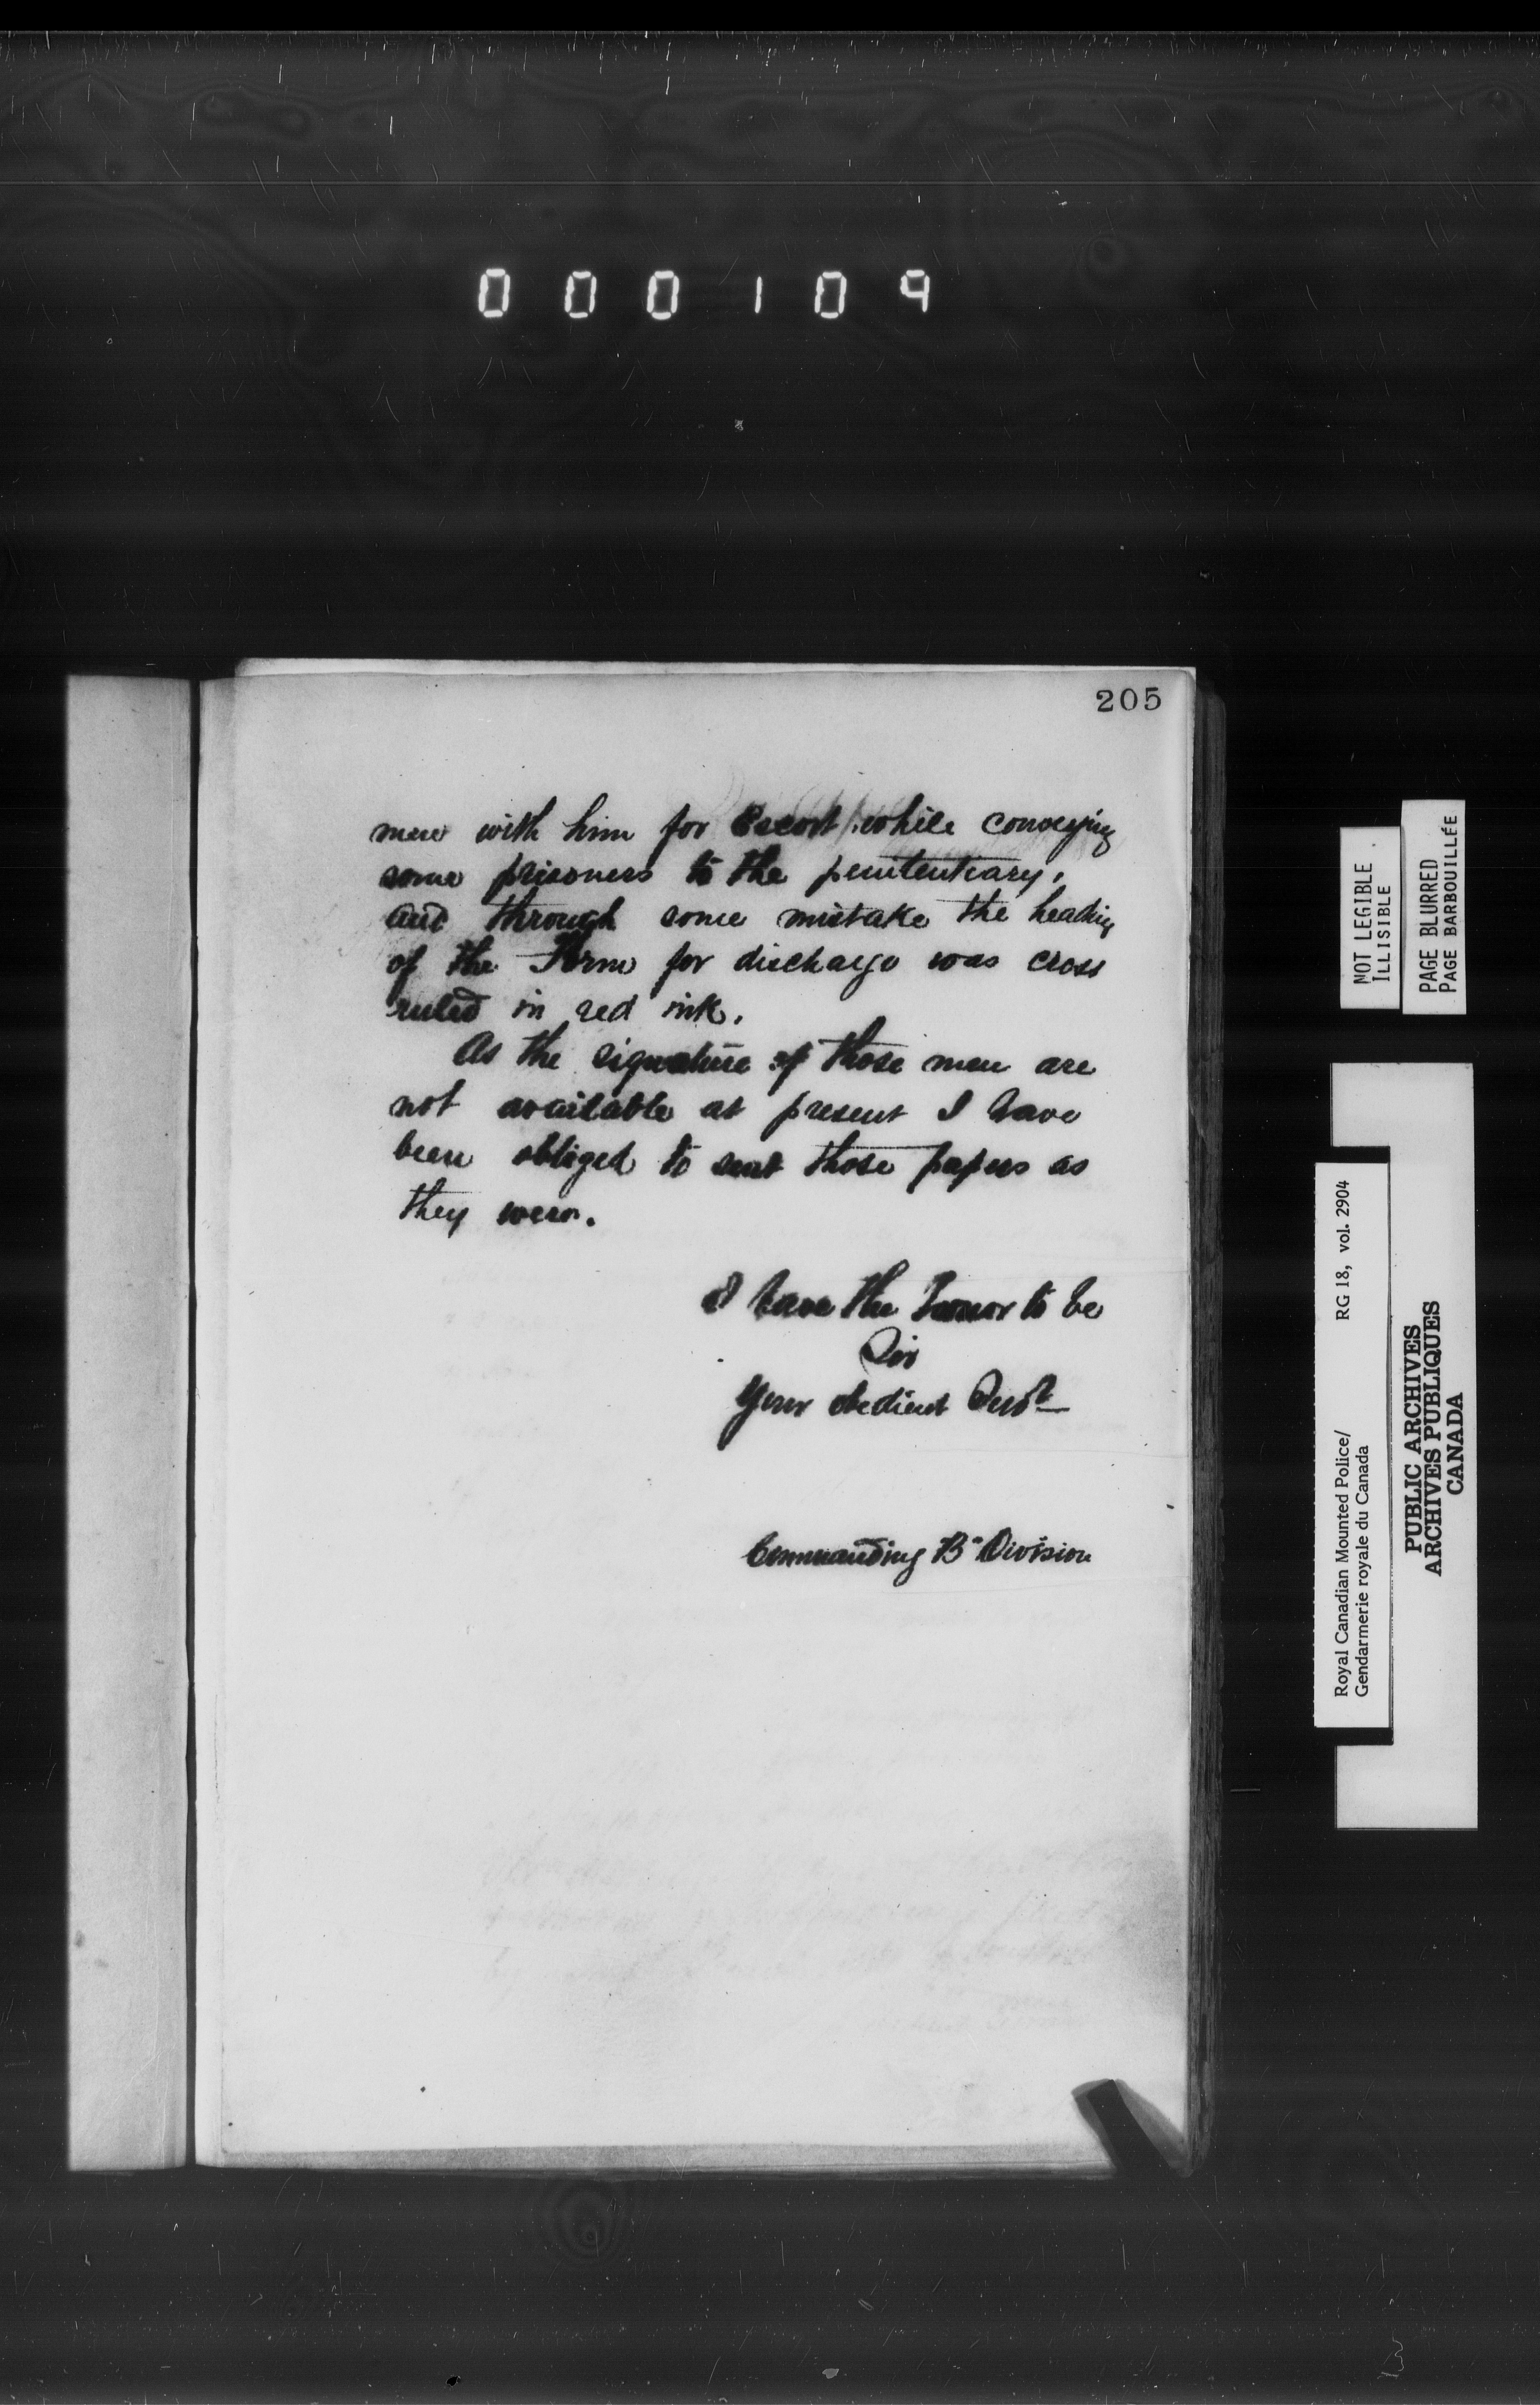 000109
205
men with him for Escort while conveying
some prisoners to the penitentiary,
and through some mistake the heading
of the Form for discharge was cross
ruled in red ink.
As the signature of those men are
not available at present I have
been obliged to sent those papers as
they were.
I have the honor to be
Sir
Your obedient Servt
Commanding "B" Division
NOT LEGIBLE
ILLISIBLE
PAGE BLURRED
PAGE BARBOUILLÉE
Royal Canadian Mounted Police/ RG 18, vol. 2904
Gendarmerie royale du Canada
PUBLIC ARCHIVES
ARCHIVES PUBLIQUES
CANADA